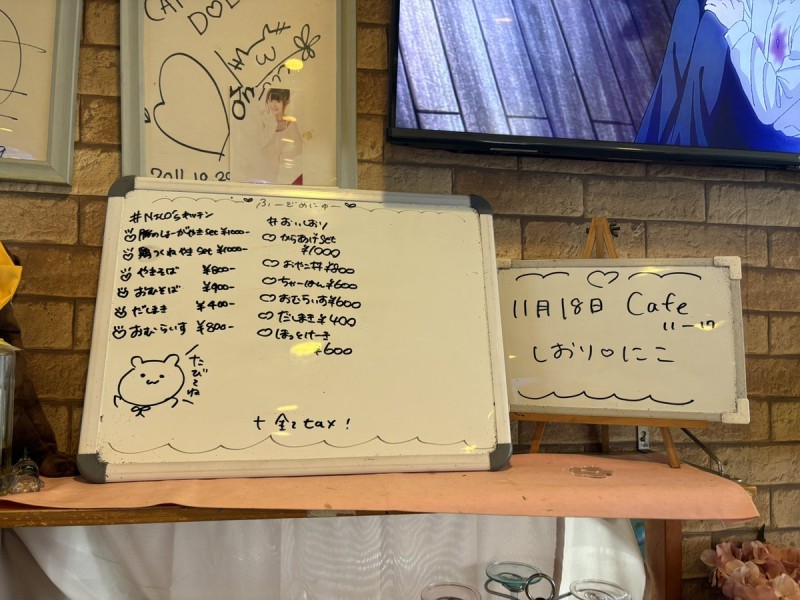 CAF
DOL
2011.10.29
ふーどめにゅー
#NICO'sキッチン
豚のしょーがやきset ¥1000-
鶏つくねやきset ¥1000-
やきそば ¥800-
おむそば ¥900-
だしまき ¥400-
おむらいす ¥800-
たびてね
#おいしおり
からあげset
¥1000
おやこ丼 ¥800
ちゃーはん ¥600
おむらいす ¥600
だしまき ¥400
ほっとけーき
¥600
+ 全て tax!
11月18日 Cafe
11-17
しおり♡にこ